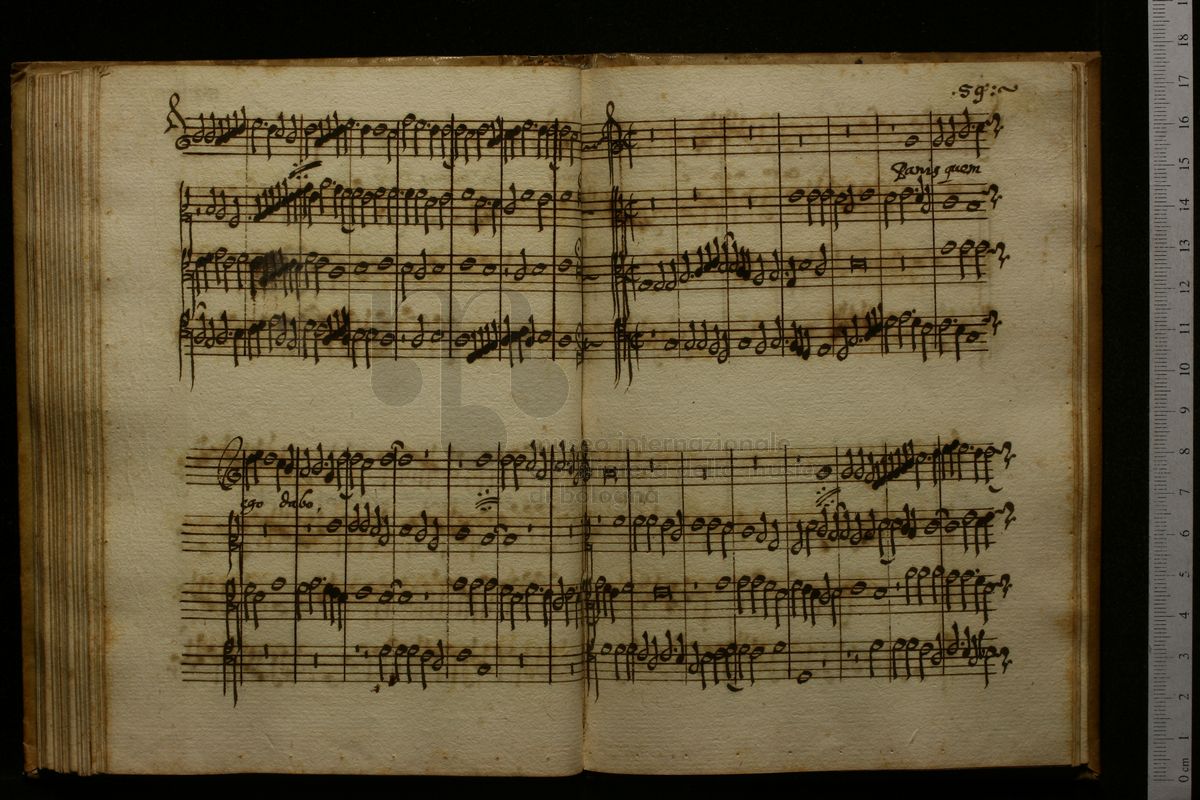 .59:~
Panis quem
ego dabo,
museo internazionale
di bologna
0 cm 1 2 3 4 5 6 7 8 9 10 11 12 13 14 15 16 17 18